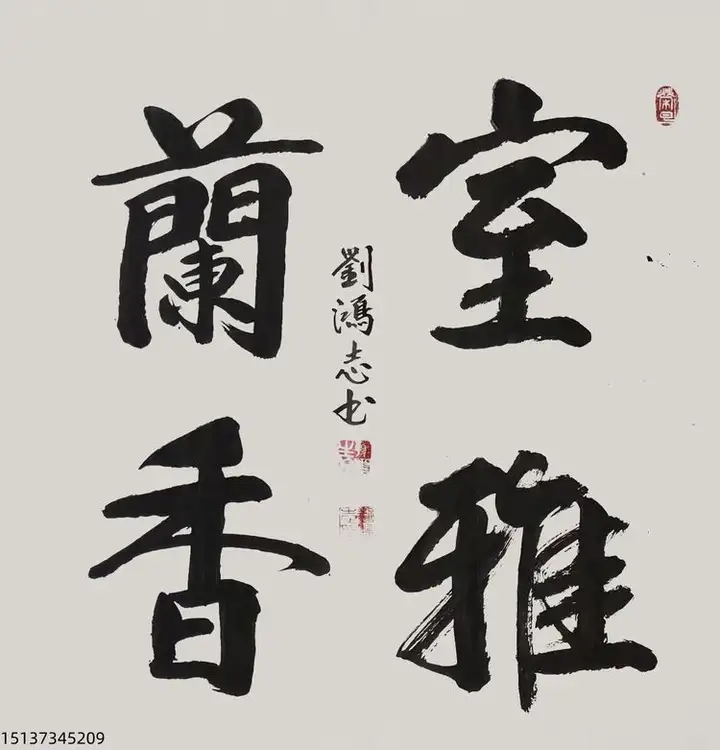 室雅
蘭香
劉鴻志书
15137345209